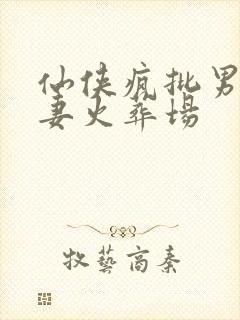 仙侠疯批男
妻火葬场
牧藝高秦